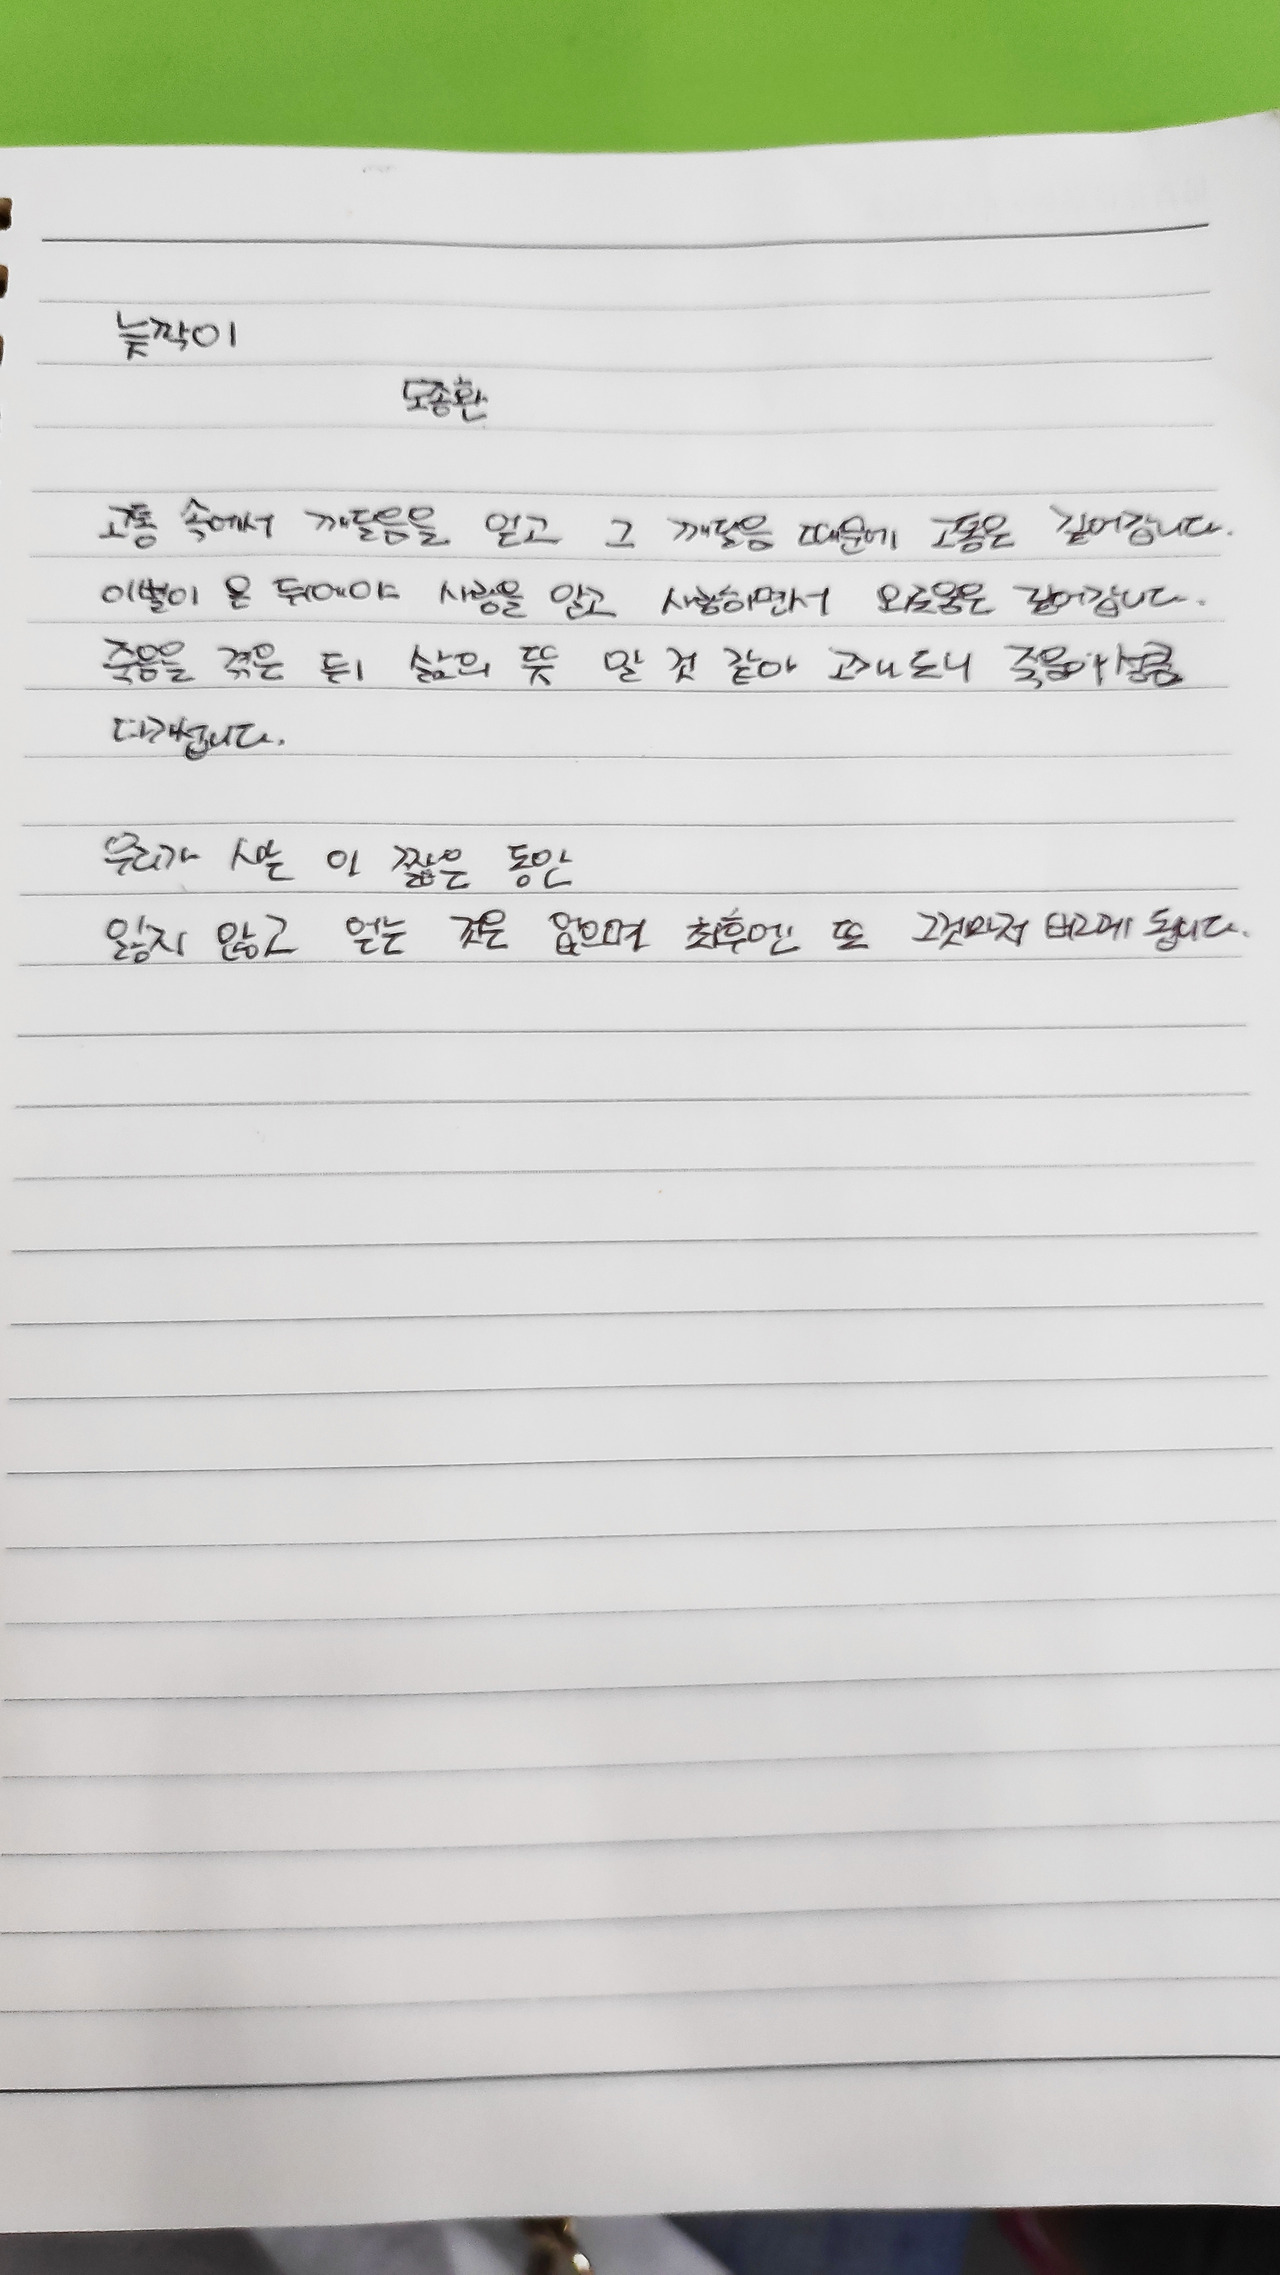 늦깎이
도종환
고통 속에서 깨달음을 얻고 그 깨달음 때문에 고통은 깊어갑니다.
이별이 온 뒤에야 사랑을 알고 사랑하면서 외로움은 깊어갑니다.
죽음을 겪은 뒤 삶의 뜻 알 것 같아 고개 드니 죽음이 성큼
다가섭니다.
우리가 사는 이 짧은 동안
잃지 않고 얻는 것은 없으며 최후엔 또 그것마저 버리게 됩니다.